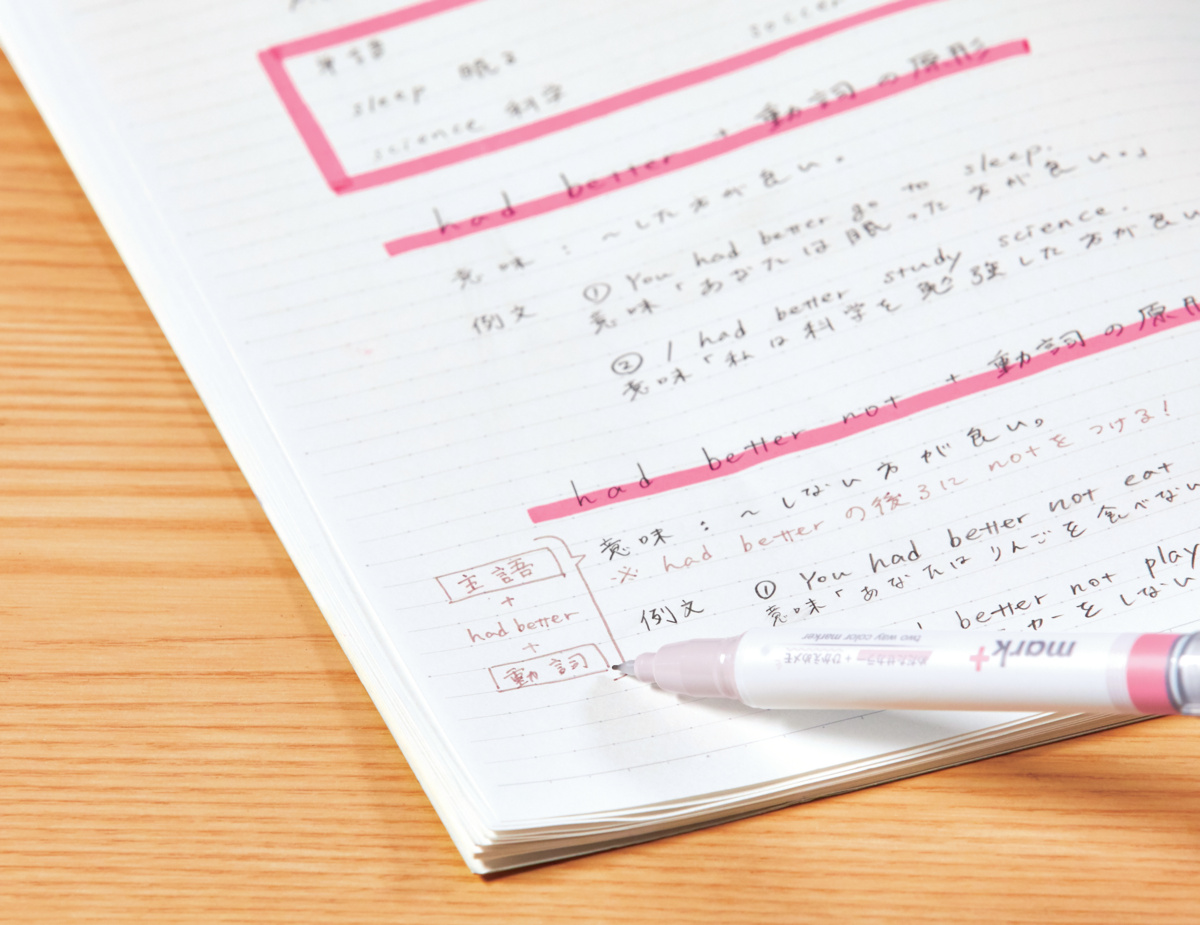 単語
soccer
sleep 眠る
science 科学
had better + 動詞の原形
意味:〜した方が良い。
例文 ① You had better go to sleep.
意味「あなたは眠った方が良い。」
② I had better study science.
意味「私は科学を勉強した方が良い
had better not + 動詞の原形
意味:〜しない方が良い。
※ had betterの後ろに notをつける!
主語
+
had better
+
動詞
例文 ① You had better not eat
意味「あなたはりんごを食べない
better not play
カーをしない
mark+
two way color marker
+ ひかえめメモ